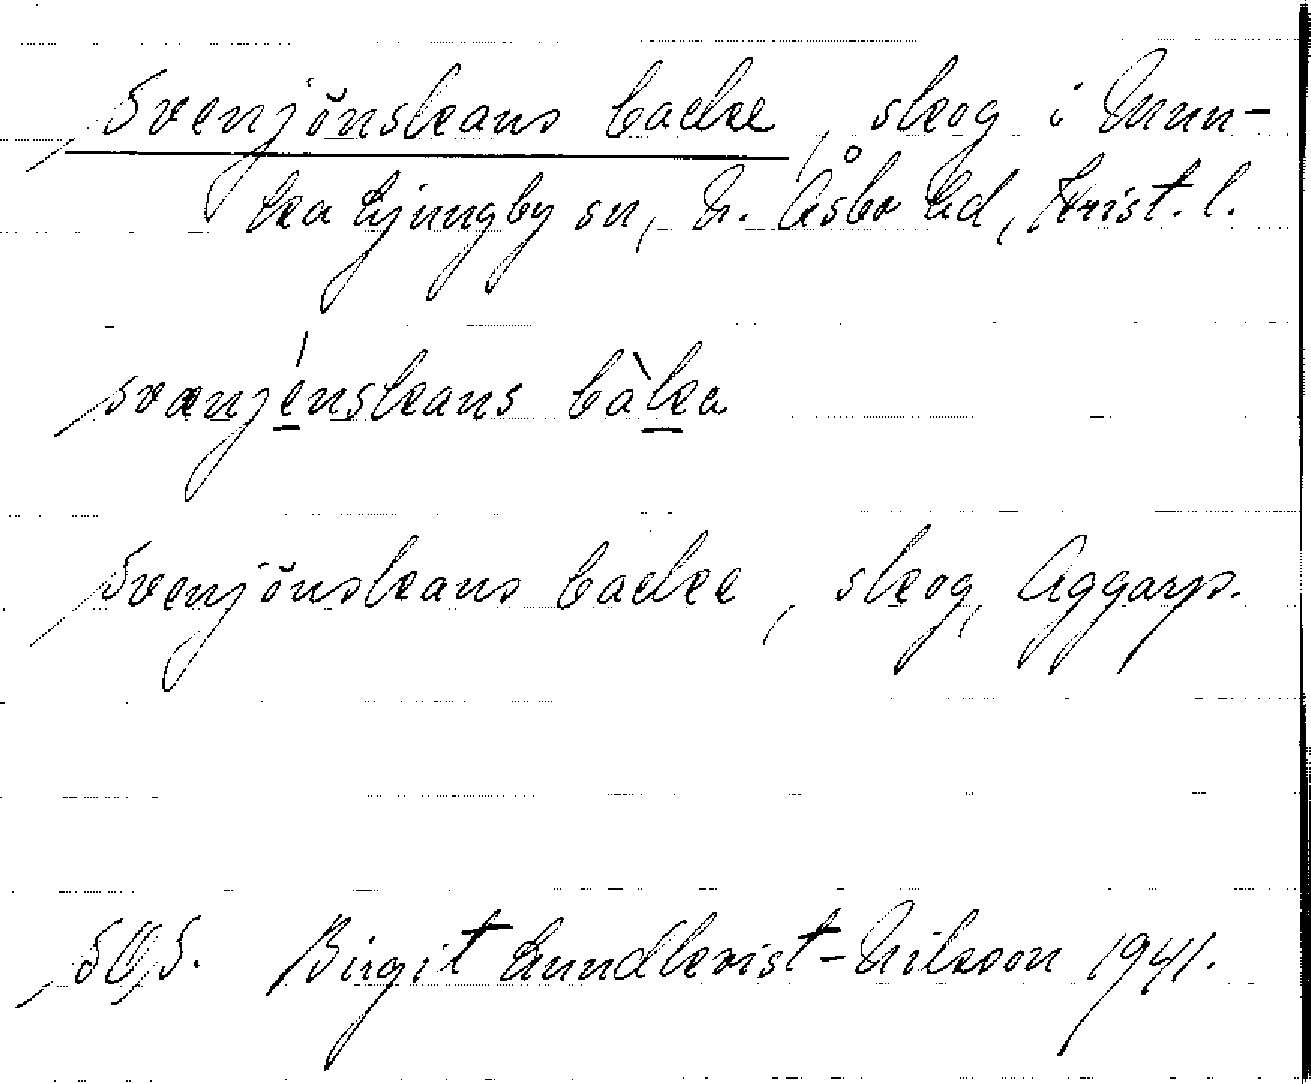 Svenjönskans backe, skog i Mun-
ka Ljungby sn, N. Åsbo hd, Krist. l.
svænjénskans bàka
Svenjönskans backe, skog, Aggarp.
SOS. Birgit Lundkvist-Nilsson 1941.